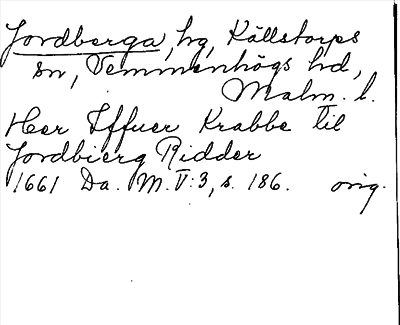 Jordberga, hg, Källstorps
sn, Vemmenhögs hd,
Malm. l.
Her Iffuer Krabbe til
Jordbierg Ridder
1661 Da. M. V:3, s. 186. orig.